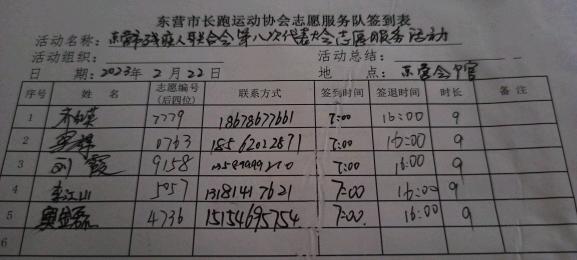 东营市长跑运动协会志愿服务队签到表
活动名称：东营市残疾人联合会第八次代表大会志愿服务活动
活动组织： 活动总结：
日 期：2023年2月22日 地 点：东营会馆
序号 姓 名 志愿编号（后四位） 联系方式 签到时间 签退时间 时长 备 注
1 7779 18678677661 7:00 16:00 9
2 0763 18562022871 7:00 16:00 9
3 刘霞 9158 7:00 16:00 9
4 李江山 5057 13181417621 7:00 16:00 9
5 4736 15154695754 7:00 16:00 9
6